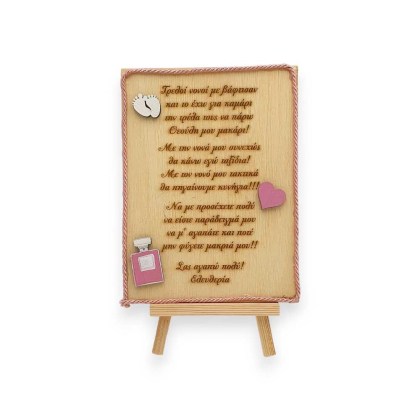 Τρελοί νονοί με βάφτισαν
και το έχω για καμάρι
την τρέλα της να πάρω
Θεούλη μου μακάρι!
Με την νονά μου συνεχώς
θα κάνω εγώ ταξίδια!
Με τον νονό μου τακτικά
θα πηγαίνουμε κυνήγια!!!
Να με προσέχετε πολύ
να είστε παράδειγμά μου
να μ' αγαπάτε και ποτέ
μην φύγετε μακριά μου!!
Σας αγαπώ πολύ!
Ελευθερία